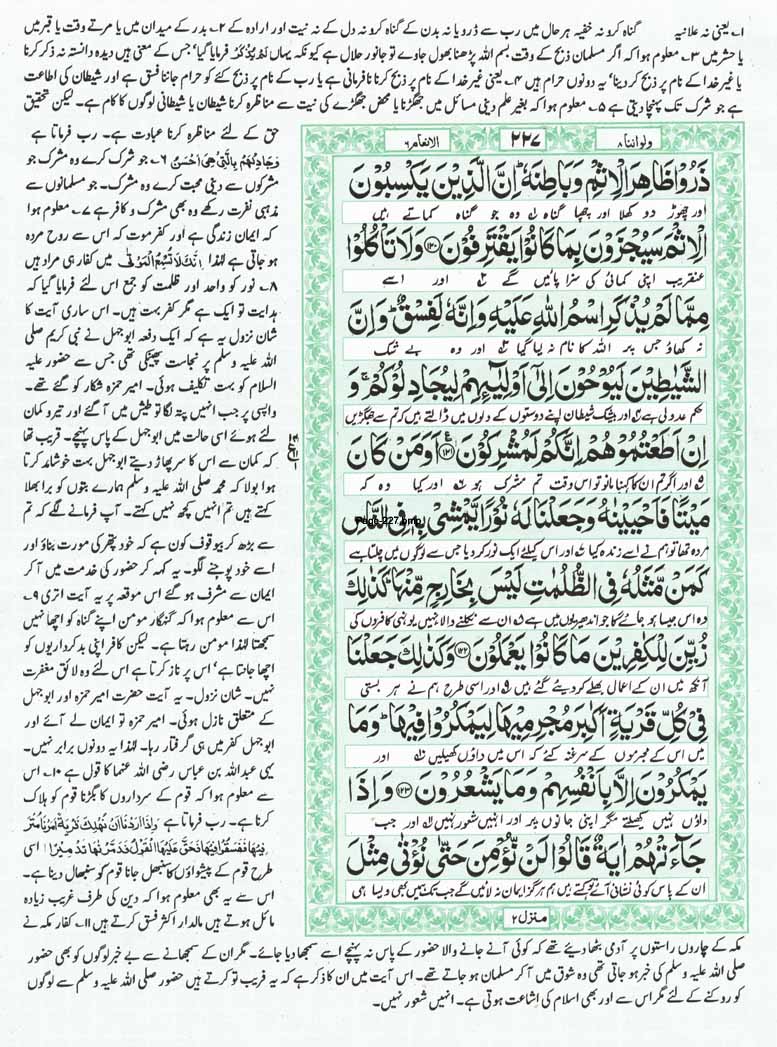 ۱۔ یعنی نہ علانیہ گناہ کرو نہ خفیہ ہر حال میں رب سے ڈرو یا نہ بدن کے گناہ کرو نہ دل کے نہ نیت اور ارادہ کے ۲۔ بدر کے میدان میں یا مرتے وقت یا قبر میں
یا حشر میں ۳۔ معلوم ہوا کہ اگر مسلمان ذبح کے وقت بسم اللہ پڑھنا بھول جاوے تو جانور حلال ہے کیونکہ یہاں لَمْ یُذْکَرْ فرمایا گیا، جس کے معنی ہیں دیدہ دانستہ نہ ذکر کرنا
یا غیر خدا کے نام پر ذبح کر دینا، یہ دونوں حرام ہیں ۴۔ یعنی غیر خدا کے نام پر ذبح کرنا نافرمانی ہے یا رب کے نام پر ذبح کئے کو حرام جاننا فسق ہے اور شیطان کی اطاعت
ہے جو شرک تک پہنچا دیتی ہے ۵۔ معلوم ہوا کہ بغیر علم دینی مسائل میں جھگڑنا یا محض جھگڑے کی نیت سے مناظرہ کرنا شیطان یا شیطانی لوگوں کا کام ہے۔ لیکن تحقیق
ولو اننا ۸ ۲۲۷ الانعام ۶
ذَرُوْا ظَاهِرَ الْاِثْمِ وَ بَاطِنَهٗ ؕ اِنَّ الَّذِیْنَ یَكْسِبُوْنَ
اور چھوڑ دو کھلا اور چھپا گناہ وہ جو گناہ کماتے ہیں
الْاِثْمَ سَیُجْزَوْنَ بِمَا كَانُوْا یَقْتَرِفُوْنَ ﴿۱۲۰﴾ وَ لَا تَاْكُلُوْا
عنقریب اپنی کمائی کی سزا پائیں گے اور اسے
مِمَّا لَمْ یُذْكَرِ اسْمُ اللّٰهِ عَلَیْهِ وَ اِنَّهٗ لَفِسْقٌ ؕ وَ اِنَّ
نہ کھاؤ جس پر اللہ کا نام نہ لیا گیا اور وہ بے شک
الشَّیٰطِیْنَ لَیُوْحُوْنَ اِلٰۤی اَوْلِیٰٓـِٕهِمْ لِیُجَادِلُوْكُمْ ۚ وَ
حکم عدولی ہے اور بیشک شیطان اپنے دوستوں کے دلوں میں ڈالتے ہیں کہ تم سے جھگڑیں
اِنْ اَطَعْتُمُوْهُمْ اِنَّكُمْ لَمُشْرِكُوْنَ ﴿۱۲۱﴾ اَوَ مَنْ كَانَ
اور اگر تم ان کا کہنا مانو تو اس وقت تم مشرک ہو اور کیا وہ کہ
مَیْتًا فَاَحْیَیْنٰهُ وَ جَعَلْنَا لَهٗ نُوْرًا یَّمْشِیْ بِهٖ فِی النَّاسِ
Page-227.bmp
مردہ تھا تو ہم نے اسے زندہ کیا اور اس کیلئے ایک نور کر دیا جس سے لوگوں میں چلتا ہے
كَمَنْ مَّثَلُهٗ فِی الظُّلُمٰتِ لَیْسَ بِخَارِجٍ مِّنْهَا ؕ كَذٰلِكَ
وہ اس جیسا ہو جائے گا جو اندھیریوں میں ہے ان سے نکلنے والا نہیں یونہی کافروں کی
زُیِّنَ لِلْكٰفِرِیْنَ مَا كَانُوْا یَعْمَلُوْنَ ﴿۱۲۲﴾ وَ كَذٰلِكَ جَعَلْنَا
آنکھ میں ان کے اعمال بھلے کر دیئے گئے ہیں اور اسی طرح ہم نے ہر بستی
فِیْ كُلِّ قَرْیَةٍ اَكٰبِرَ مُجْرِمِیْهَا لِیَمْكُرُوْا فِیْهَا ؕ وَ مَا
میں اس کے مجرموں کے سرغنہ کئے کہ اس میں داؤں کھیلیں اور
یَمْكُرُوْنَ اِلَّا بِاَنْفُسِهِمْ وَ مَا یَشْعُرُوْنَ ﴿۱۲۳﴾ وَ اِذَا
داؤں نہیں کھیلتے مگر اپنی جانوں پر اور انہیں شعور نہیں اور جب
جَآءَتْهُمْ اٰیَةٌ قَالُوْا لَنْ نُّؤْمِنَ حَتّٰی نُؤْتٰی مِثْلَ
ان کے پاس کوئی نشانی آئے تو کہتے ہیں ہم ہرگز ایمان نہ لائیں گے جب تک ہمیں بھی ویسا ہی
منزل ۲
حق کے لئے مناظرہ کرنا عبادت ہے۔ رب فرماتا ہے
وَجَادِلْهُمْ بِالَّتِیْ هِیَ اَحْسَنُ ۶۔ جو شرک کرے وہ مشرک جو
مشرکوں سے دینی محبت کرے وہ مشرک۔ جو مسلمانوں سے
مذہبی نفرت رکھے وہ بھی مشرک و کافر ہے ۷۔ معلوم ہوا
کہ ایمان زندگی ہے اور کفر موت کہ اس سے روح مردہ
ہو جاتی ہے لہٰذا اِنَّكَ لَا تُسْمِعُ الْمَوْتٰى میں کفار ہی مراد ہیں
۸۔ نور کو واحد اور ظلمت کو جمع اس لئے فرمایا گیا کہ
ہدایت تو ایک ہے مگر کفر بہت ہیں۔ اس ساری آیت کا
شان نزول یہ ہے کہ ایک دفعہ ابوجہل نے نبی کریم صلی
اللہ علیہ وسلم پر نجاست پھینکی تھی جس سے حضور علیہ
السلام کو بہت تکلیف ہوئی۔ امیر حمزہ شکار کو گئے تھے۔
واپسی پر جب انہیں پتہ لگا تو طیش میں آ گئے اور تیر و کمان
لئے ہوئے اسی حالت میں ابوجہل کے پاس پہنچے۔ قریب تھا
کہ کمان سے اس کا سر پھاڑ دیتے ابوجہل بہت خوشامد کرتا
ہوا بولا کہ محمد صلی اللہ علیہ وسلم ہمارے بتوں کو برا بھلا
کہتے ہیں تم انہیں کچھ نہیں کہتے۔ آپ فرمانے لگے کہ تم
سے بڑھ کر بیوقوف کون ہے کہ خود پتھر کی مورت بناؤ اور
اسے خود پوجنے لگو۔ یہ کہہ کر حضور کی خدمت میں آ کر
ایمان سے مشرف ہو گئے اس موقعہ پر یہ آیت اتری ۹۔
اس سے معلوم ہوا کہ گنہگار مومن اپنے گناہ کو اچھا نہیں
سمجھتا لہٰذا مومن رہتا ہے۔ لیکن کافر اپنی بدکرداریوں کو
اچھا جانتا ہے، اس پر ناز کرتا ہے اس لئے وہ لائق مغفرت
نہیں۔ شان نزول۔ یہ آیت حضرت امیر حمزہ اور ابوجہل
کے متعلق نازل ہوئی۔ امیر حمزہ تو ایمان لے آئے اور
ابوجہل کفر میں ہی گرفتار رہا۔ لہٰذا یہ دونوں برابر نہیں۔
یہی عبداللہ بن عباس رضی اللہ عنہما کا قول ہے ۱۰۔ اس
سے معلوم ہوا کہ قوم کے سرداروں کا بگڑنا قوم کو ہلاک
کرنا ہے۔ رب فرماتا ہے وَاِذَا اَرَدْنَا اَنْ نُّهْلِكَ قَرْیَةً اَمَرْنَا مُتْرَ
فِیْهَا فَفَسَقُوْا فِیْهَا فَحَقَّ عَلَیْهَا الْقَوْلُ فَدَمَّرْنٰهَا تَدْمِیْرًا اسی
طرح قوم کے پیشواؤں کا سنبھل جانا قوم کو سنبھال دینا ہے۔
اس سے یہ بھی معلوم ہوا کہ دین کی طرف غریب زیادہ
مائل ہوتے ہیں مالدار اکثر فسق کرتے ہیں ۱۱۔ کفار مکہ نے
مکہ کے چاروں راستوں پر آدمی بٹھا دیئے تھے کہ کوئی آنے جانے والا حضور کے پاس نہ پہنچے اسے سمجھا دیا جائے۔ مگر ان کے سمجھانے سے بے خبر لوگوں کو بھی حضور
صلی اللہ علیہ وسلم کی خبر ہو جاتی تھی وہ شوق میں آ کر مسلمان ہو جاتے تھے۔ اس آیت میں ان کا ذکر ہے کہ یہ فریب تو کرتے ہیں حضور صلی اللہ علیہ وسلم سے لوگوں
کو روکنے کے لئے مگر اس سے اور بھی اسلام کی اشاعت ہوتی ہے۔ انہیں شعور نہیں۔